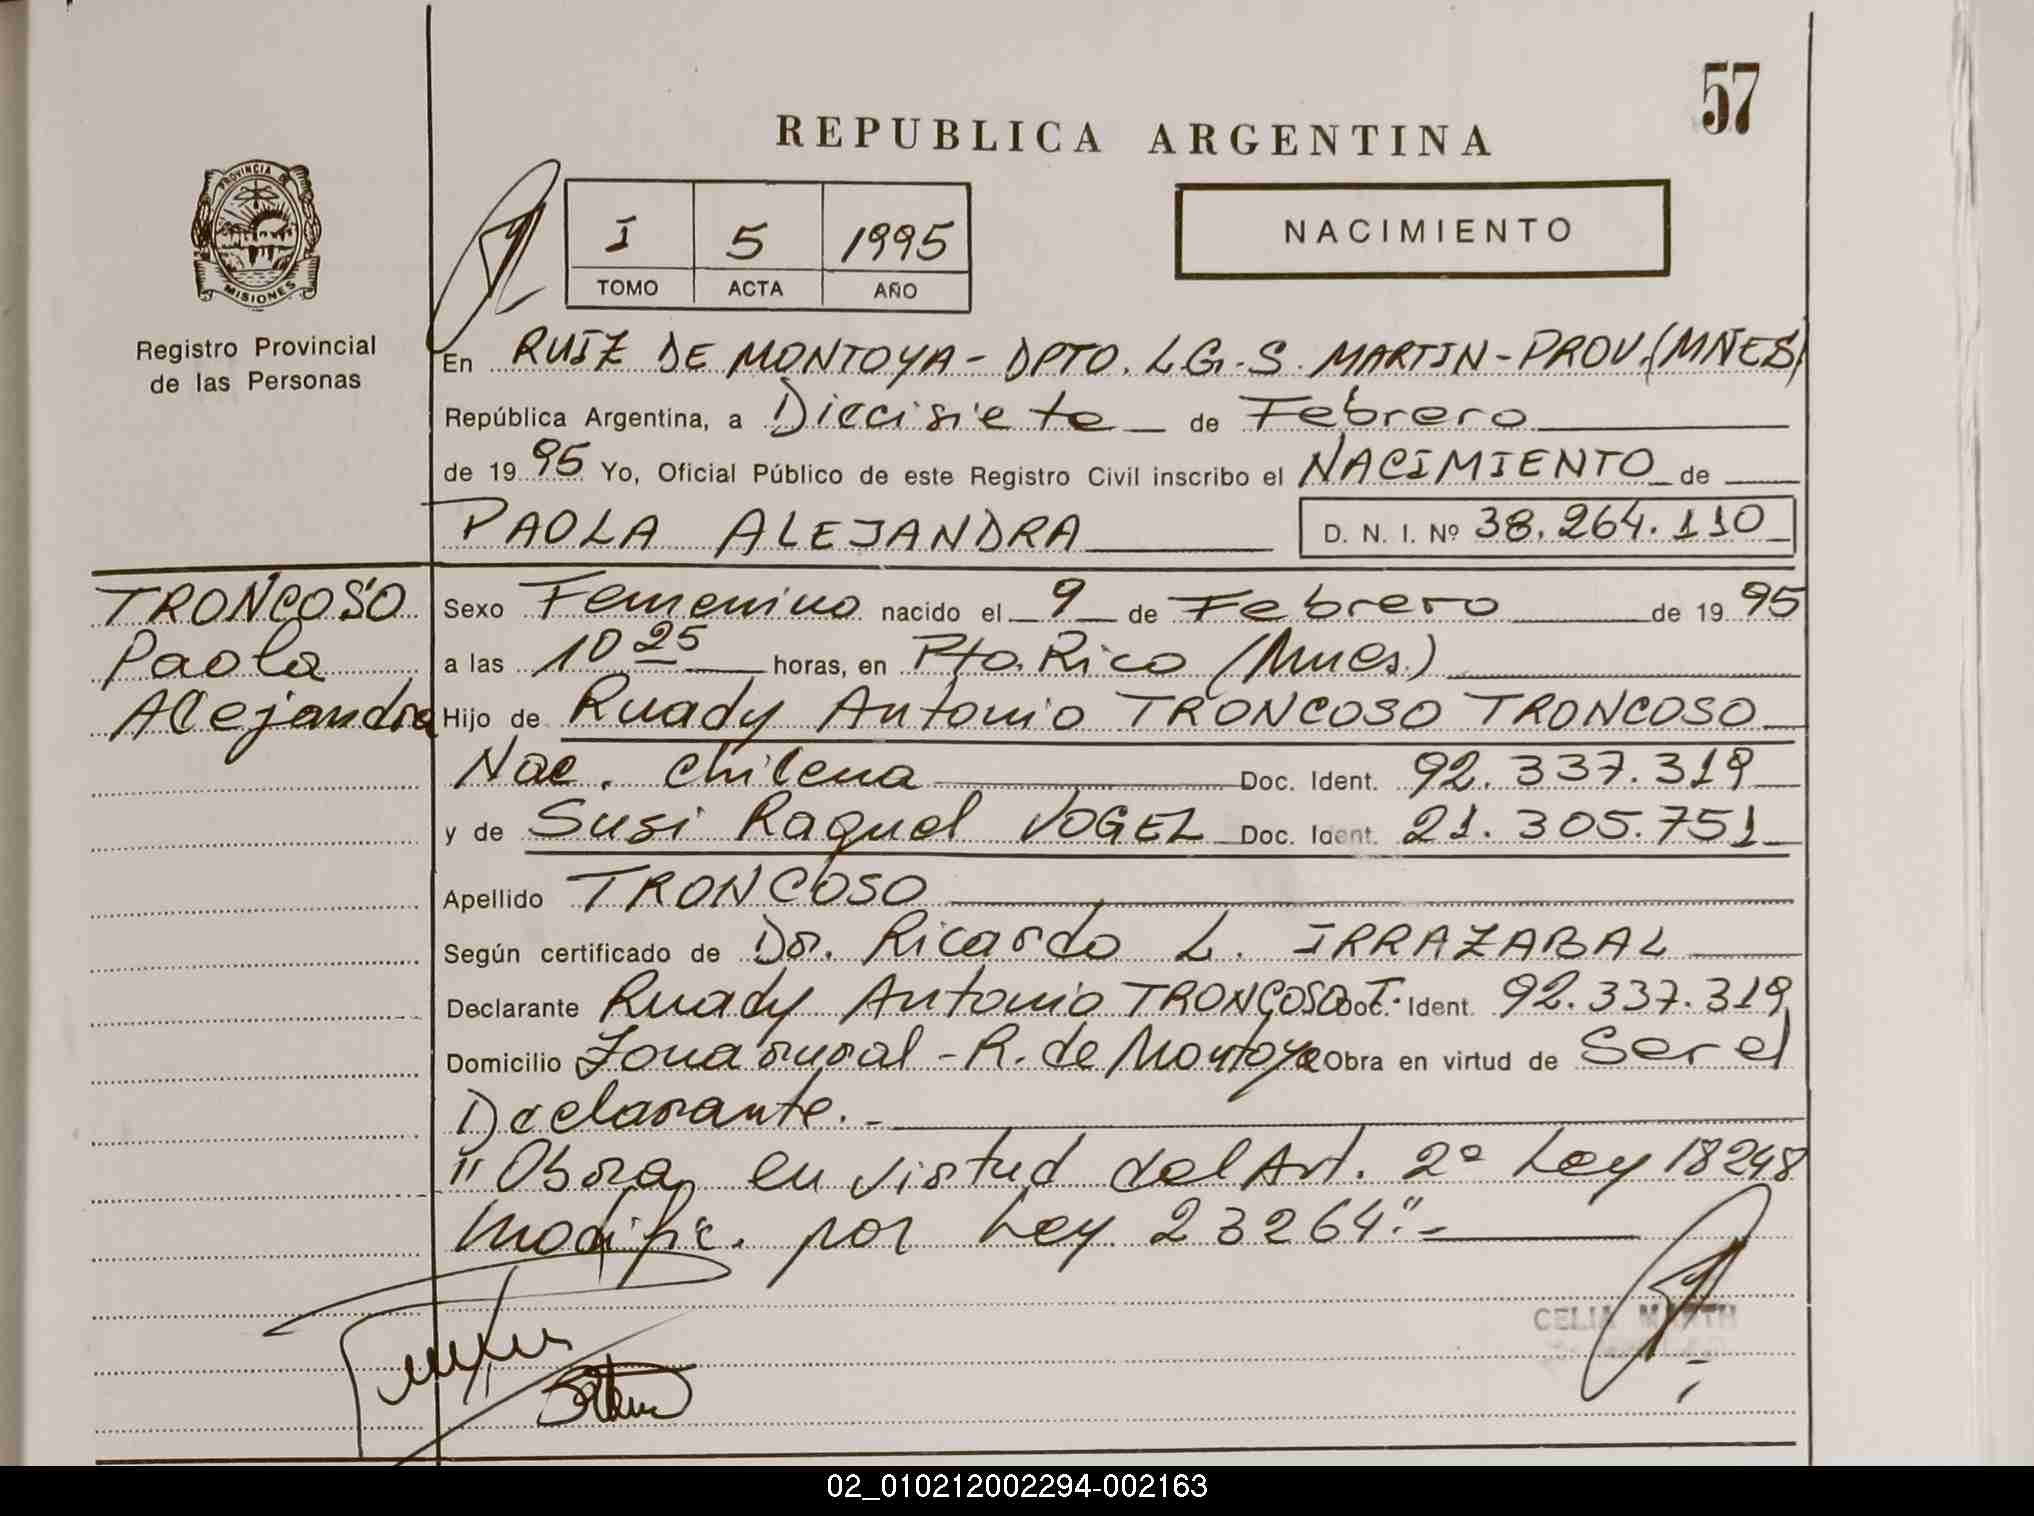 57
REPUBLICA ARGENTINA
PROVINCIA DE
MISIONES
Registro Provincial
de las Personas
I 5 1995
TOMO ACTA AÑO
NACIMIENTO
En RUIZ DE MONTOYA - DPTO. LG. S. MARTIN - PROV. (MNES)
República Argentina, a Diecisiete de Febrero
de 1995 Yo, Oficial Público de este Registro Civil inscribo el NACIMIENTO de
PAOLA ALEJANDRA D. N. I. Nº 38.264.110
TRONCOSO
Paola
Alejandra
Sexo Femenino nacido el 9 de Febrero de 1995
a las 10 25 horas, en Pto. Rico (Mnes.)
Hijo de Ruady Antonio TRONCOSO TRONCOSO
Nac. chilena Doc. Ident. 92.337.319
y de Susi Raquel VOGEL Doc. Ident. 21.305.751
Apellido TRONCOSO
Según certificado de Dr. Ricardo L. IRRAZABAL
Declarante Ruady Antonio TRONCOSO T. Doc. Ident. 92.337.319
Domicilio Zona rural - R. de Montoya Obra en virtud de Ser el
Declarante. -
"Obra en virtud del Art. 2º Ley 18248
modific. por Ley 23264". -
CELIA MARTH
02_010212002294-002163